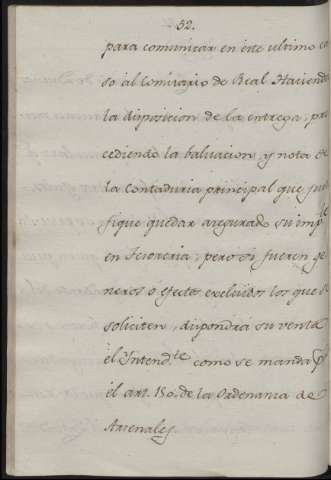 52.
para comunicar en este ultimo ca
so al Comisario de Real Hacienda
la disposicion de la entrega, pre
cediendo la baluacion, y nota de
la Contaduria principal que jus
tifique quedar asegurado su imp.te
en Tesoreria; pero si fueren ge
neros o efectos excluidos los que se
soliciten, dispondrá su venta
el Intend.te como se manda pr
el art. 150. de la Ordenanza de
Arsenales.